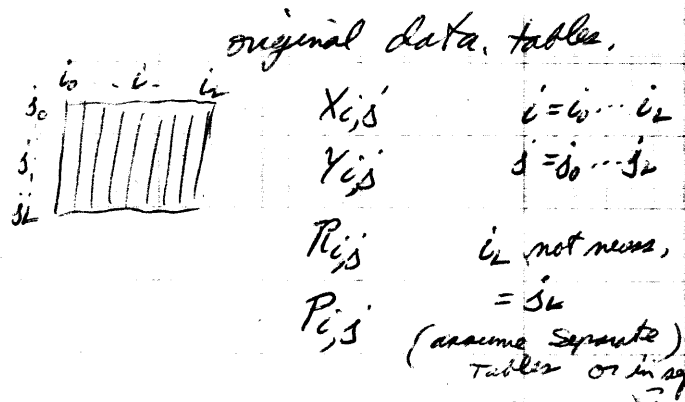 original data. tables.
i₀ . i - i_L
j₀
j,
j_L
X_{i,j} i = i₀ ... i_L
Y_{i,j} j = j₀ ... j_L
R_{i,j} i_L not necess,
P_{i,j} = j_L
(assume Separate)
Tables or in